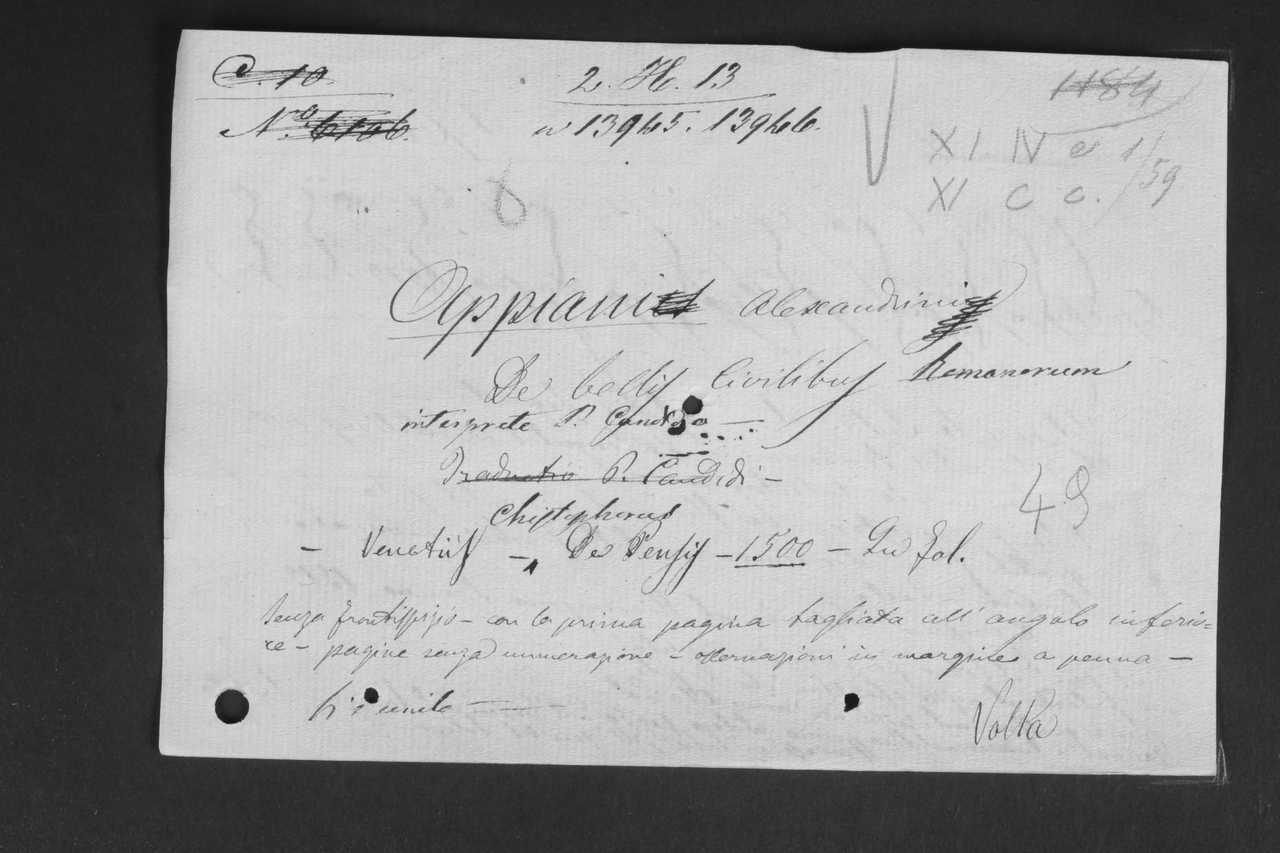 C. 10
2. H. 13
1184
No. 6106.
n 13945. 13946.
XI IV c 1/59
XI C c.
8
Appiani Alexandrini
De bellis Civilibus Romanorum
interprete P. Candido —
Traductio P. Candidi —
Christophorus
— Venetiis — De Pensis — 1500 — In fol.
49
Senza frontispizio — con la prima pagina tagliata all' angolo inferio=
re — pagine senza numerazione — osservazioni in margine a penna —
Vi è unito
Volta